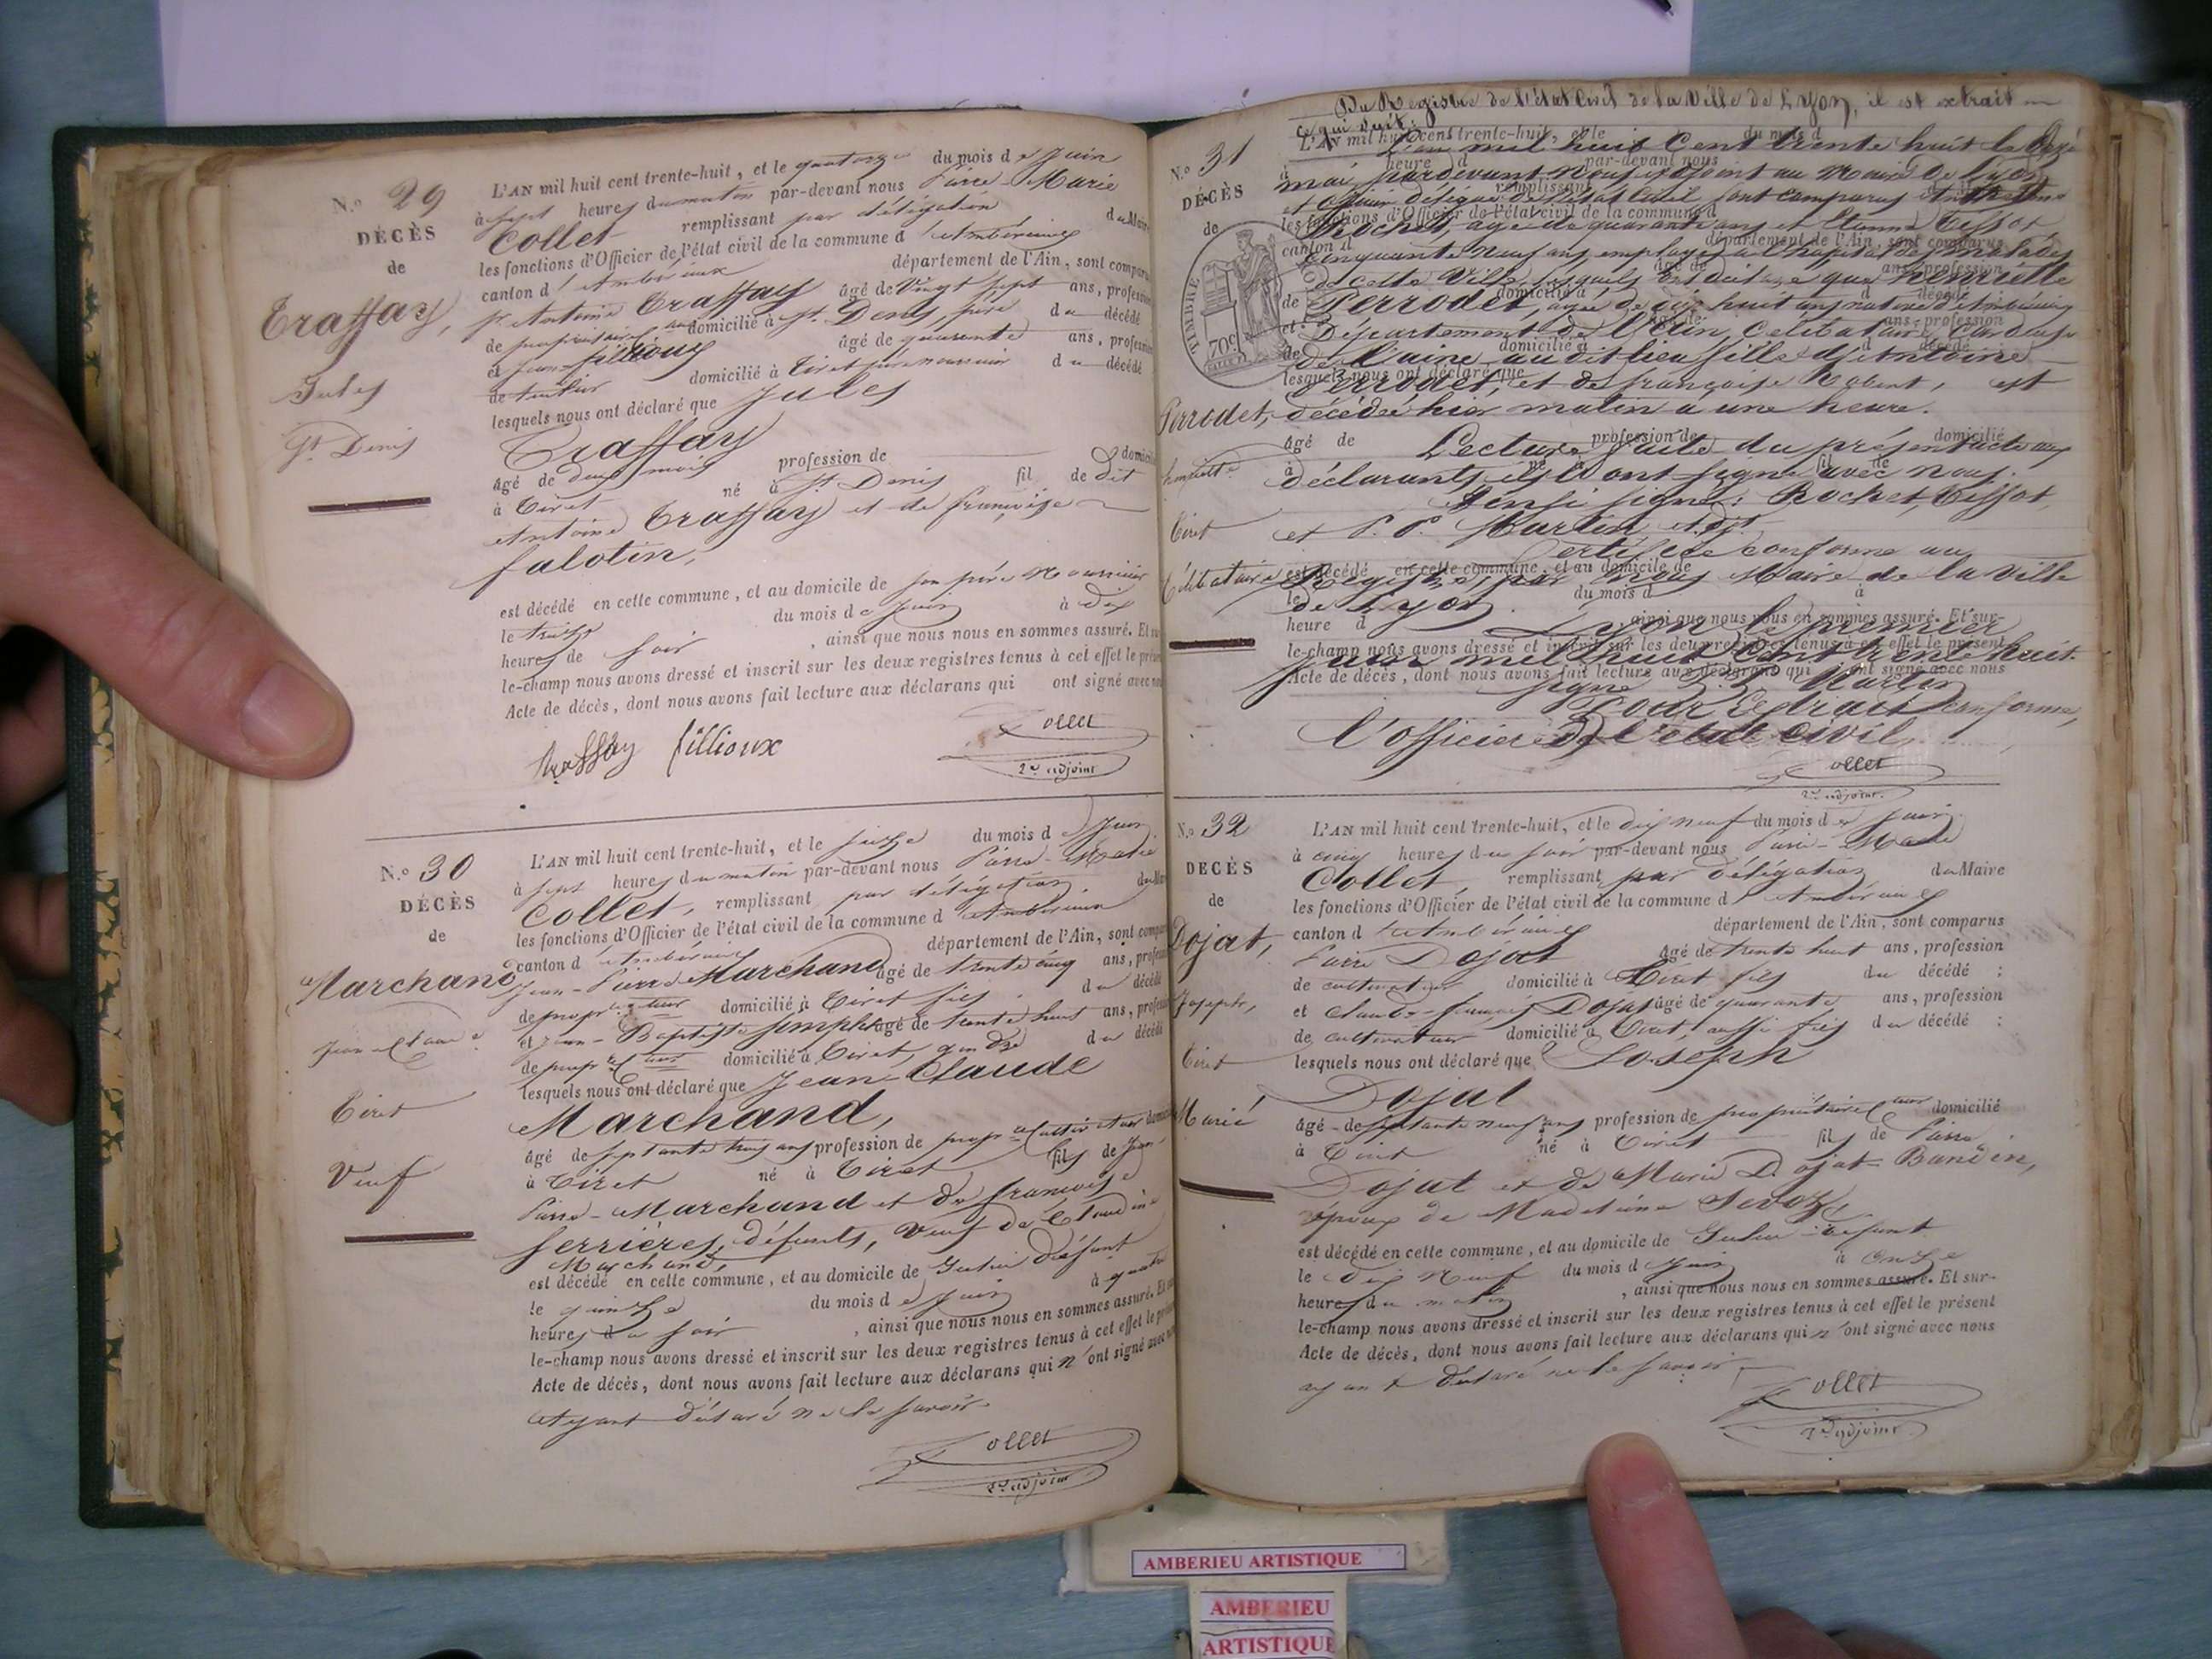 N.o 29
DÉCÈS
de
Traffay,
Jules
St Denis
L'AN mil huit cent trente-huit, et le quatorze du mois de Juin
à sept heures du matin par-devant nous Pierre-Marie
Collet remplissant par délégation du Maire
les fonctions d'Officier de l'état civil de la commune d'Ambérieux
canton d'Ambérieux département de l'Ain, sont comparus
Antoine Traffay âgé de Vingt sept ans, profession
de propriétaire domicilié à St. Denis, père du décédé
et Jean fillioux âgé de quarante ans, profession
de domicilié à Tiret père nourricier du décédé
lesquels nous ont déclaré que Jules
Traffay
âgé de deux mois profession de domicilié
à Tiret né à St. Denis fil de dit
Antoine Traffay et de françoise
falotin,
est décédé en cette commune, et au domicile de son père nourricier
le treize du mois de Juin à dix
heures de soir, ainsi que nous nous en sommes assuré. Et sur-
le-champ nous avons dressé et inscrit sur les deux registres tenus à cet effet le présent
Acte de décès, dont nous avons fait lecture aux déclarans qui ont signé avec nous
traffay fillioux Collet
2e adjoint
N.o 30
DÉCÈS
de
Marchand
Jean Claude
Tiret
Veuf
L'AN mil huit cent trente-huit, et le seize du mois de Juin
à sept heures du matin par-devant nous Pierre-Marie
Collet, remplissant par délégation du Maire
les fonctions d'Officier de l'état civil de la commune d'Ambérieux
canton d'Ambérieux département de l'Ain, sont comparus
Jean-Pierre Marchand âgé de trente cinq ans, profession
de propre cultivateur domicilié à Tiret fils du décédé
et Jean-Baptiste âgé de trente huit ans, profession
de propre domicilié à Tiret, gendre du décédé
lesquels nous ont déclaré que Jean-Claude
Marchand,
âgé de septante trois ans profession de propre cultivateur domicilié
à Tiret né à Tiret fils de Jean
Pierre-Marchand et de françoise
ferrières, défunts, Veuf de Claudine
Marchand,
est décédé en cette commune, et au domicile de Lui défunt
le quinze du mois de Juin à quatre
heures du soir, ainsi que nous nous en sommes assuré. Et sur-
le-champ nous avons dressé et inscrit sur les deux registres tenus à cet effet le présent
Acte de décès, dont nous avons fait lecture aux déclarans qui n'ont signé avec nous
Ayant déclaré ne le savoir
Collet
2e adjoint
N.o 31
DÉCÈS
de
TIMBRE
70c
Perrodet,
Tiret
Célibataire
Du Registre de l'état Civil de la Ville de Lyon, il est extrait
ce qui suit:
L'an mil huit Cent trente huit le
mai, pardevant Nous adjoint au Maire de Lyon
et officier délégué de l'état Civil sont comparus
Rochet, âgé de quarante ans et Etienne Tissot,
cinquante Neuf ans employés à l'hôpital des malades
de cette Ville, lesquels ont déclaré que henriette
Perrodet, âgée de dix huit ans native d'Ambérieux
Département de l'Ain, Célibataire
audit lieu fille d'Antoine
Perrodet, et de françoise Robert, est
décédée hier matin à une heure.
Lecture faite du présent acte aux
déclarants ils ont signé avec nous.
Ainsi signé: Rochet, Tissot,
et P. P. Martin adjt.
Certifié conforme au
Registre, par nous Maire de la Ville
de Lyon.
Lyon le premier
Juin mil huit Cent trente huit.
Signé Martin
Pour Extrait conforme,
L'officier de l'état Civil
Collet
2e adjoint.
N.o 32
DÉCÈS
de
Dojat,
Joseph,
Tiret
Marié
L'AN mil huit cent trente-huit, et le dix neuf du mois de Juin
à cinq heures du soir par-devant nous Pierre-Marie
Collet, remplissant par délégation du Maire
les fonctions d'Officier de l'état civil de la commune d'Ambérieux
canton d'Ambérieux département de l'Ain, sont comparus
Pierre Dojat âgé de trente huit ans, profession
de cultivateur domicilié à Tiret fils du décédé;
et Claude-françois Dojat âgé de quarante ans, profession
de cultivateur domicilié à Tiret, aussi fils du décédé:
lesquels nous ont déclaré que Joseph
Dojat
âgé de septante neuf ans profession de propriétaire domicilié
à Tiret né à Tiret fils de Pierre
Dojat et de Marie Dojat-
époux de Madeleine Sevoz,
est décédé en cette commune, et au domicile de Lui défunt
le dix Neuf du mois de Juin à onze
heures du matin, ainsi que nous nous en sommes assuré. Et sur-
le-champ nous avons dressé et inscrit sur les deux registres tenus à cet effet le présent
Acte de décès, dont nous avons fait lecture aux déclarans qui n'ont signé avec nous
ayant déclaré ne le savoir
Collet
2e adjoint
AMBERIEU ARTISTIQUE
AMBERIEU
ARTISTIQUE